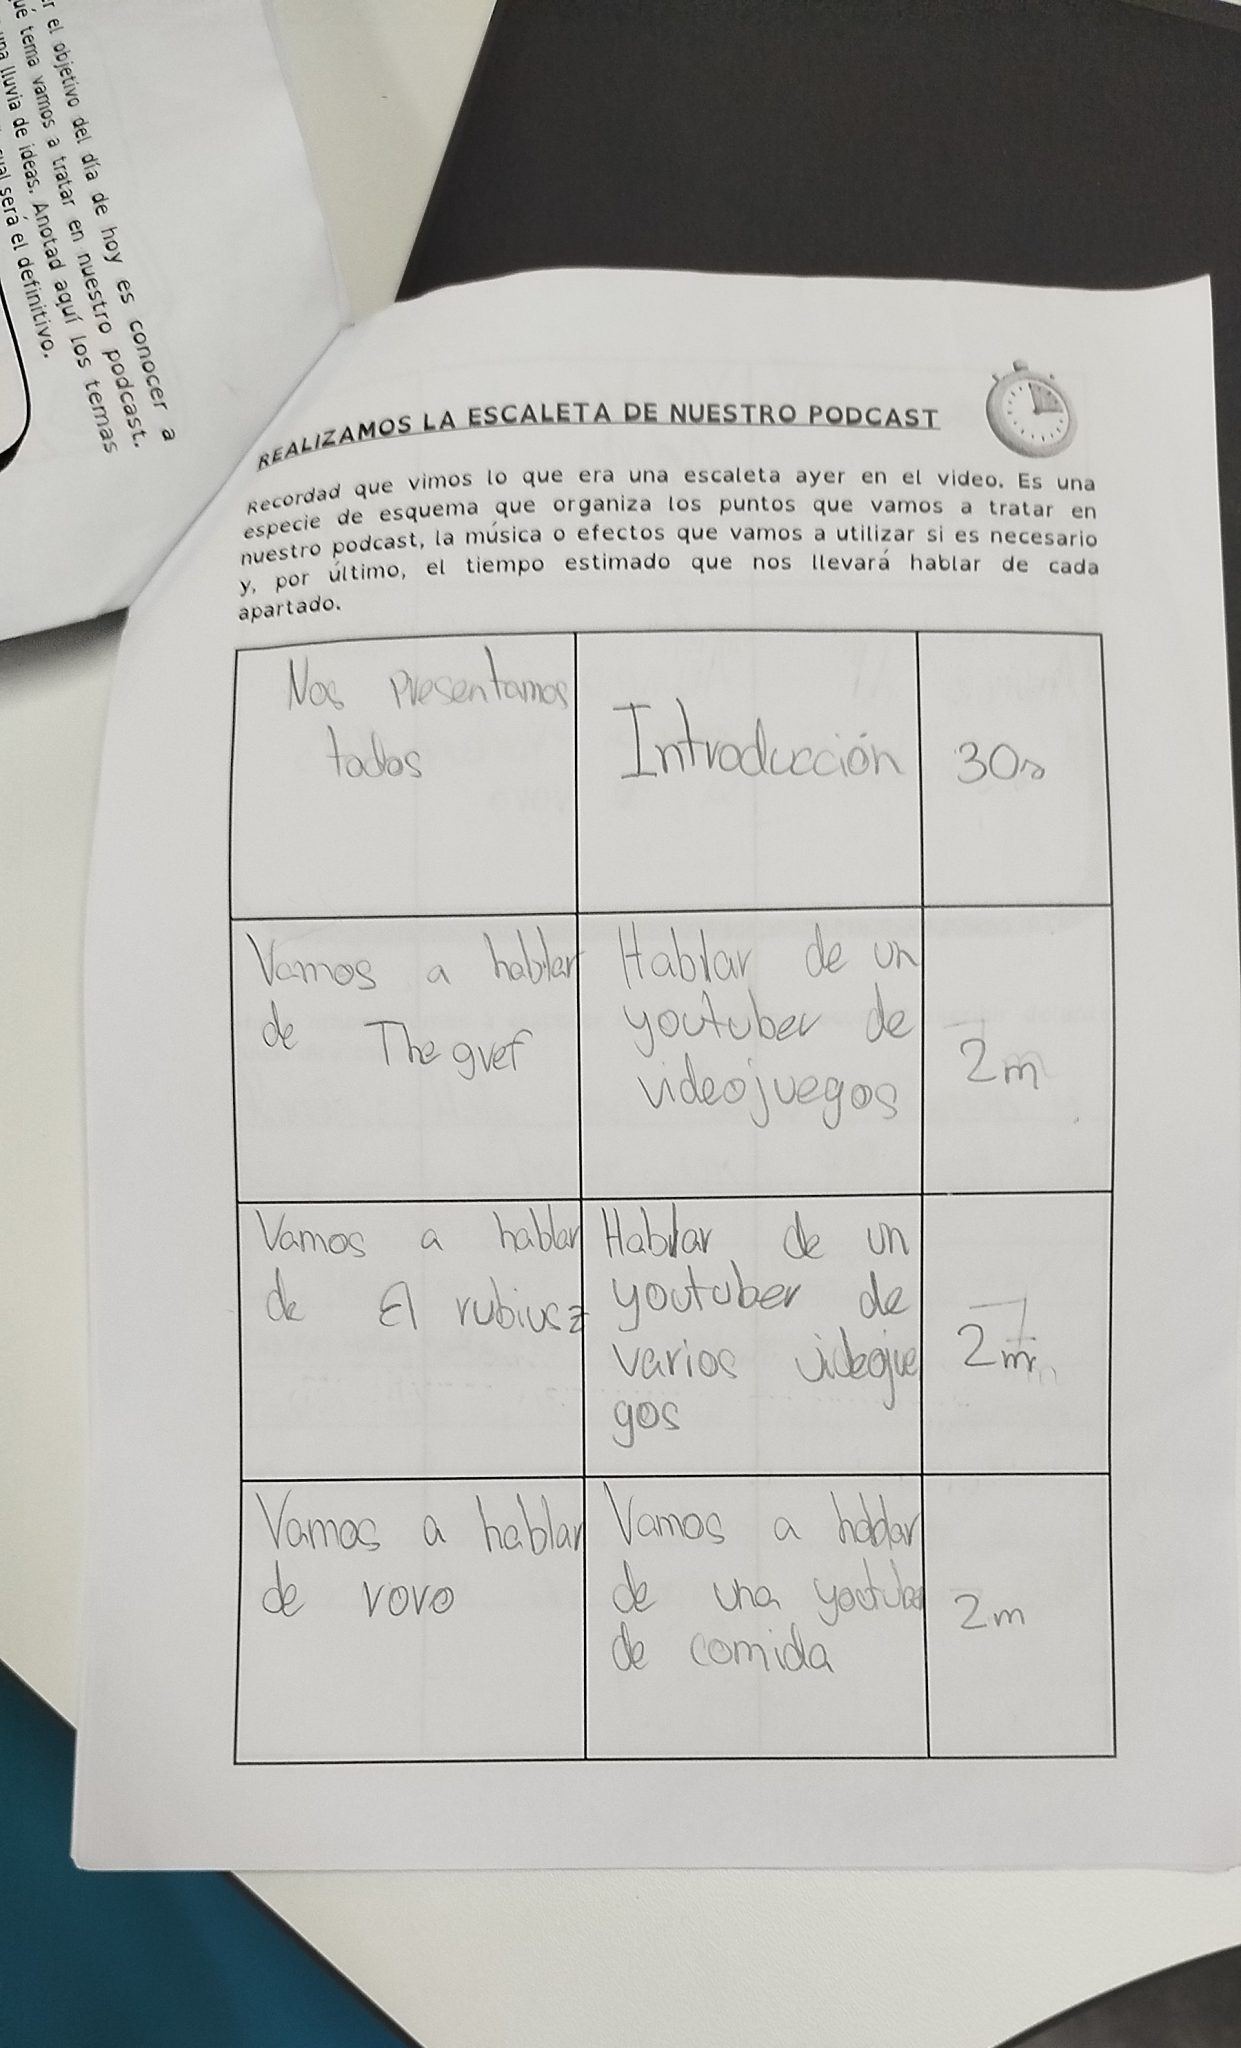 r el objetivo del día de hoy es conocer a
ué tema vamos a tratar en nuestro podcast.
una lluvia de ideas. Anotad aquí los temas
cual será el definitivo.
REALIZAMOS LA ESCALETA DE NUESTRO PODCAST
Recordad que vimos lo que era una escaleta ayer en el video. Es una
especie de esquema que organiza los puntos que vamos a tratar en
nuestro podcast, la música o efectos que vamos a utilizar si es necesario
y, por último, el tiempo estimado que nos llevará hablar de cada
apartado.
Nos presentamos
todos
Introducción
30s
Vamos a hablar
de The gref
Hablar de un
youtuber de
videojuegos
2m
Vamos a hablar
de El rubiusz
Hablar de un
youtuber de
varios videojue
gos
2m
Vamos a hablar
de roro
Vamos a hablar
de una youtuber
de comida
2m